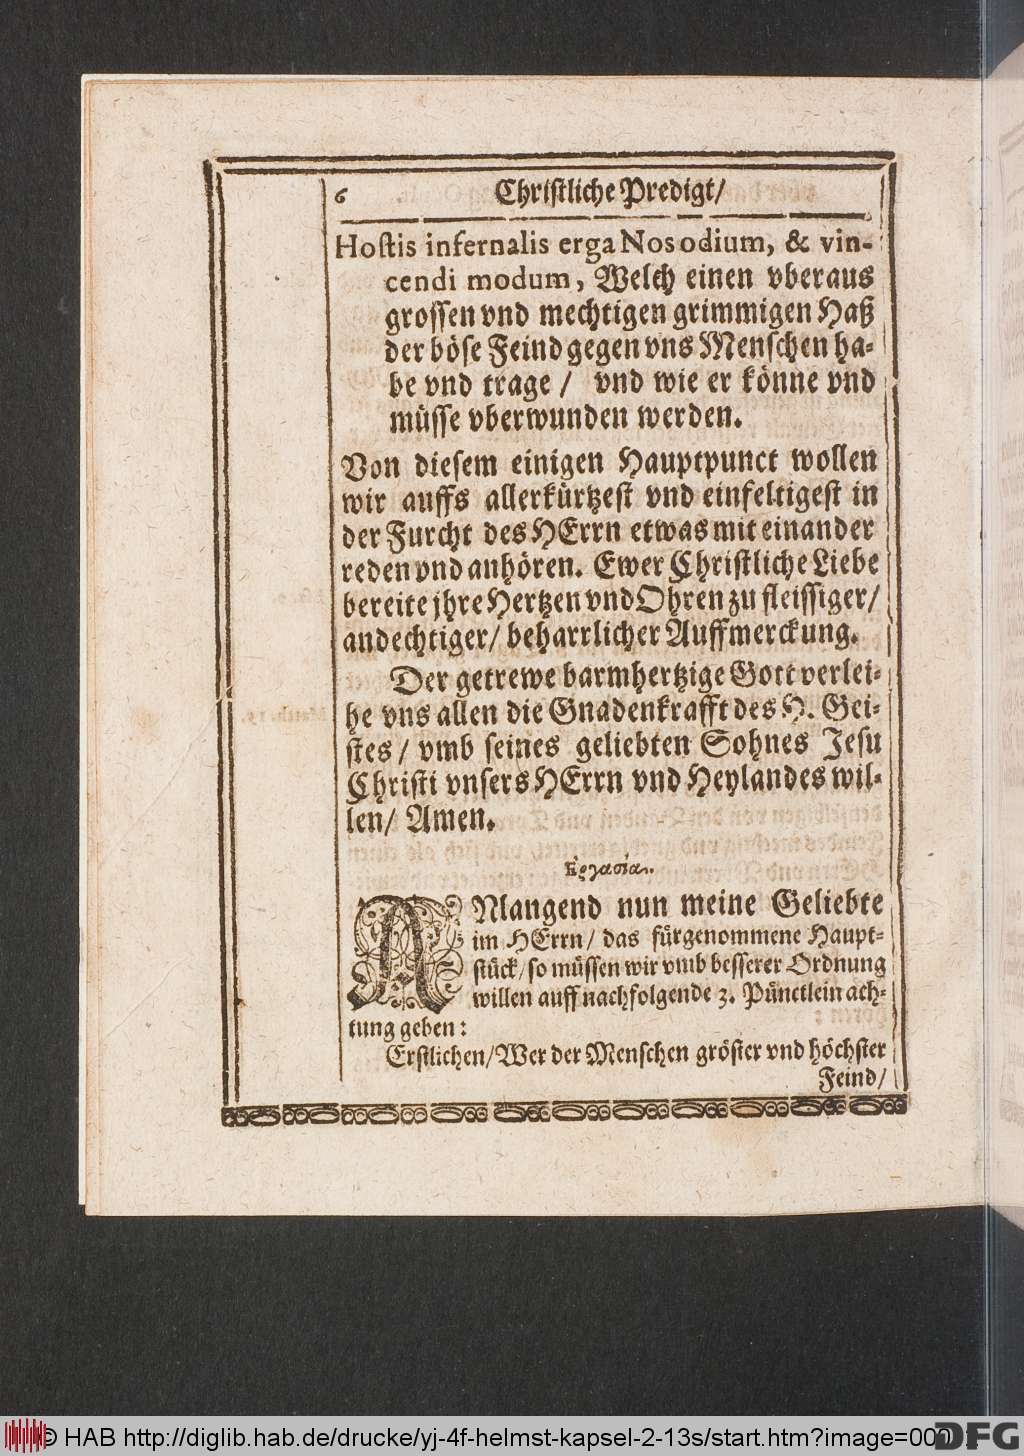 6 Christliche Predigt/
Hostis infernalis erga Nos odium, & vin-
cendi modum, Welch einen vberaus
grossen vnd mechtigen grimmigen Haß
der böse Feind gegen vns Menschen ha-
be vnd trage / vnd wie er könne vnd
müsse vberwunden werden.
Von diesem einigen Hauptpunct wollen
wir auffs allerkürtzest vnd einfeltigest in
der Furcht des HErrn etwas mit einander
reden vnd anhören. Ewer Christliche Liebe
bereite jhre Hertzen vnd Ohren zu fleissiger/
andechtiger/ beharrlicher Auffmerckung.
Der getrewe barmhertzige Gott verlei-
he vns allen die Gnadenkrafft des H. Gei-
stes / vmb seines geliebten Sohnes Jesu
Christi vnsers HErrn vnd Heylandes wil-
len/ Amen.
Ἐργασία.
ANlangend nun meine Geliebte
im HErrn/ das fürgenommene Haupt-
stück/ so müssen wir vmb besserer Ordnung
willen auff nachfolgende 3. Pünctlein ach-
tung geben:
Erstlichen/ Wer der Menschen gröster vnd höchster
Feind/
© HAB http://diglib.hab.de/drucke/yj-4f-helmst-kapsel-2-13s/start.htm?image=000
DFG